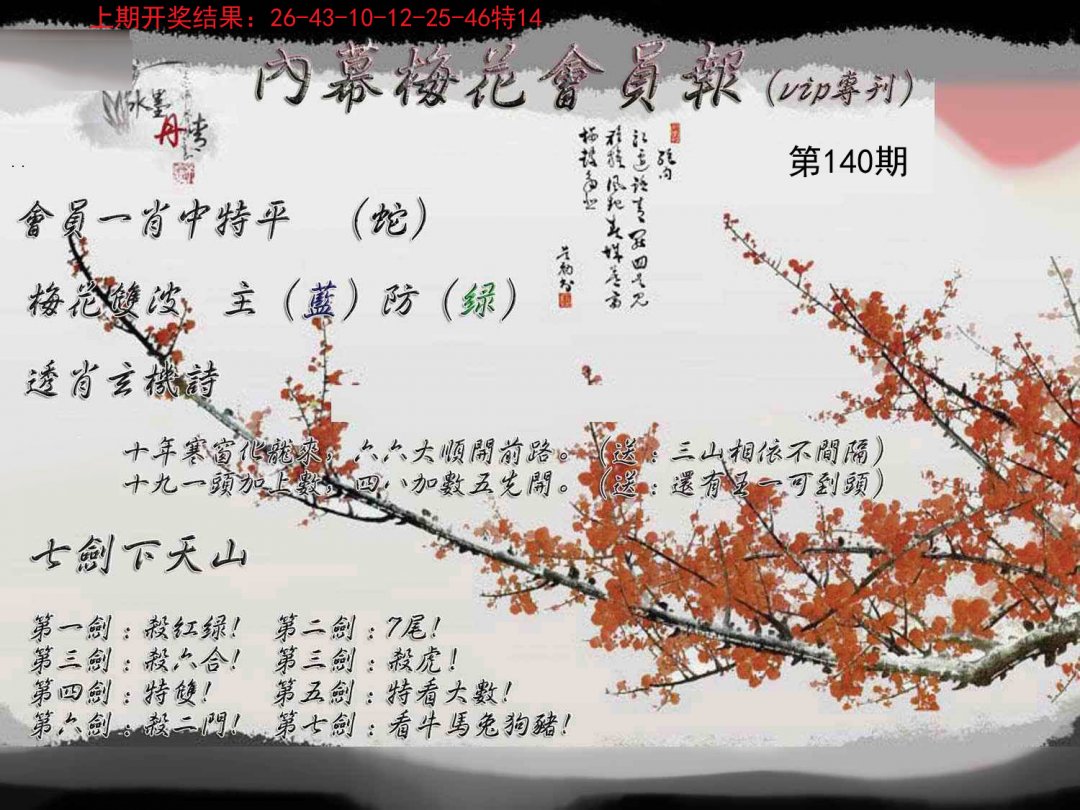 上期开奖结果：26-43-10-12-25-46特14
內幕梅花會員報（vip專刊）
水墨丹青
第140期
會員一肖中特平 （蛇）
梅花雙波 主（藍）防（绿）
透肖玄機詩
十年寒窗化龍來，六六大順開前路。（送：三山相依不間隔）
十九一頭加上數，四八加數五先開。（送：還有王一可到頭）
七劍下天山
第一劍：殺紅绿！ 第二劍：7尾！
第三劍：殺六合！ 第三劍：殺虎！
第四劍：特雙！ 第五劍：特看大數！
第六劍：殺二門！ 第七劍：看牛馬兔狗豬！